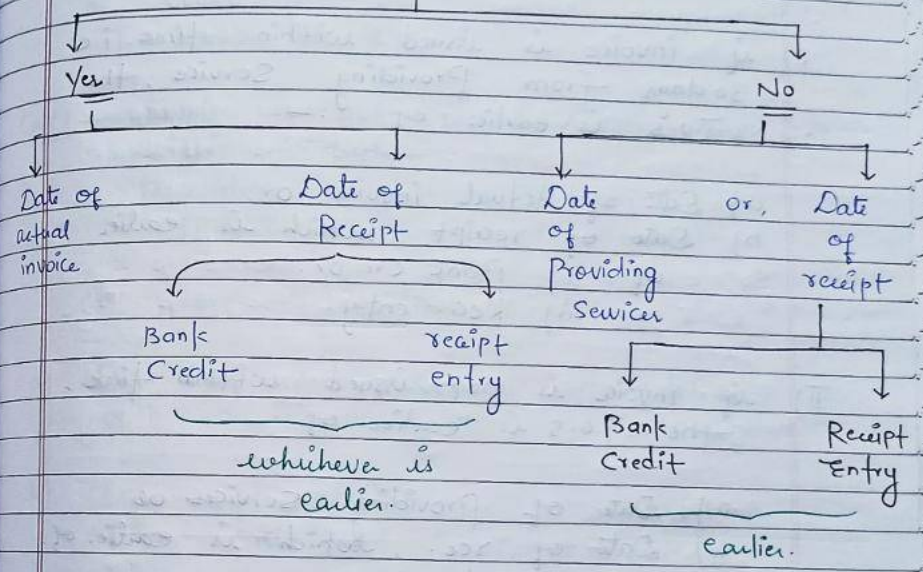 Yes
No
Date of
actual
invoice
Date of
Receipt
Date
of
Providing
Services
or,
Date
of
receipt
Bank
Credit
receipt
entry
whichever is
earlier.
Bank
Credit
Receipt
Entry
earlier.